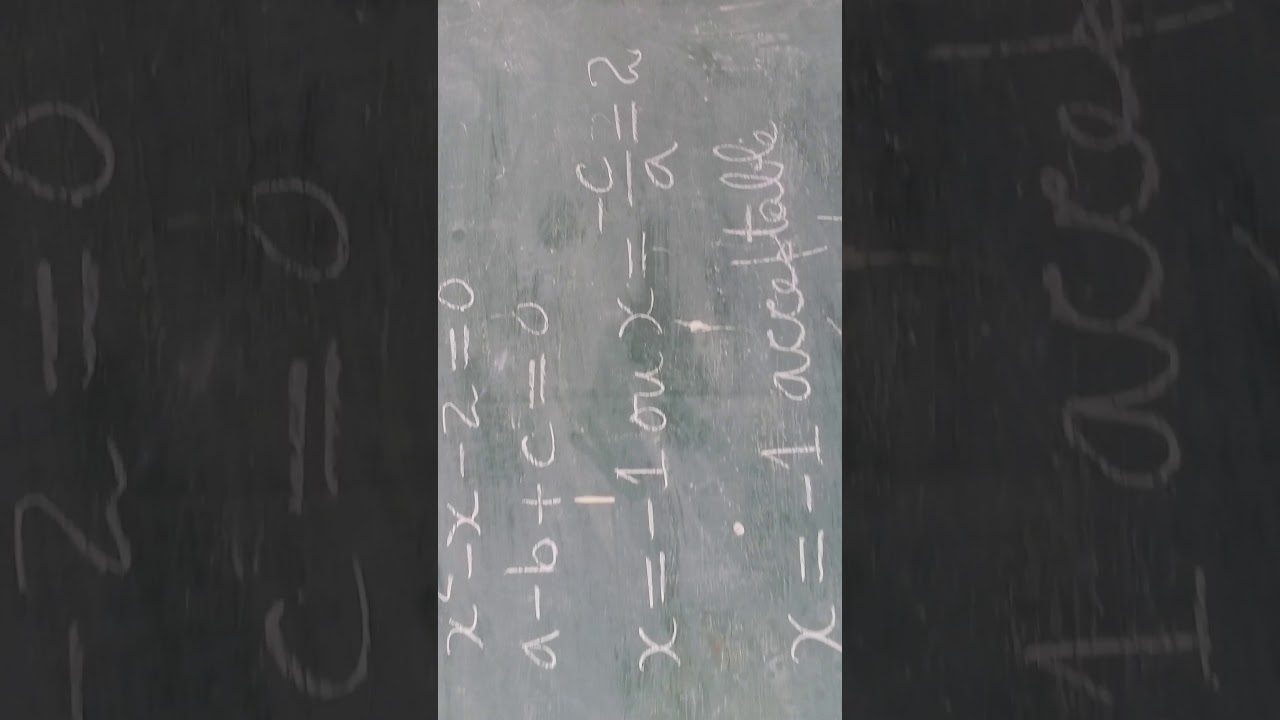 x² - x - 2 = 0
a - b + c = 0
x = -1 ou x = -c/a = 2
x = -1 acceptable